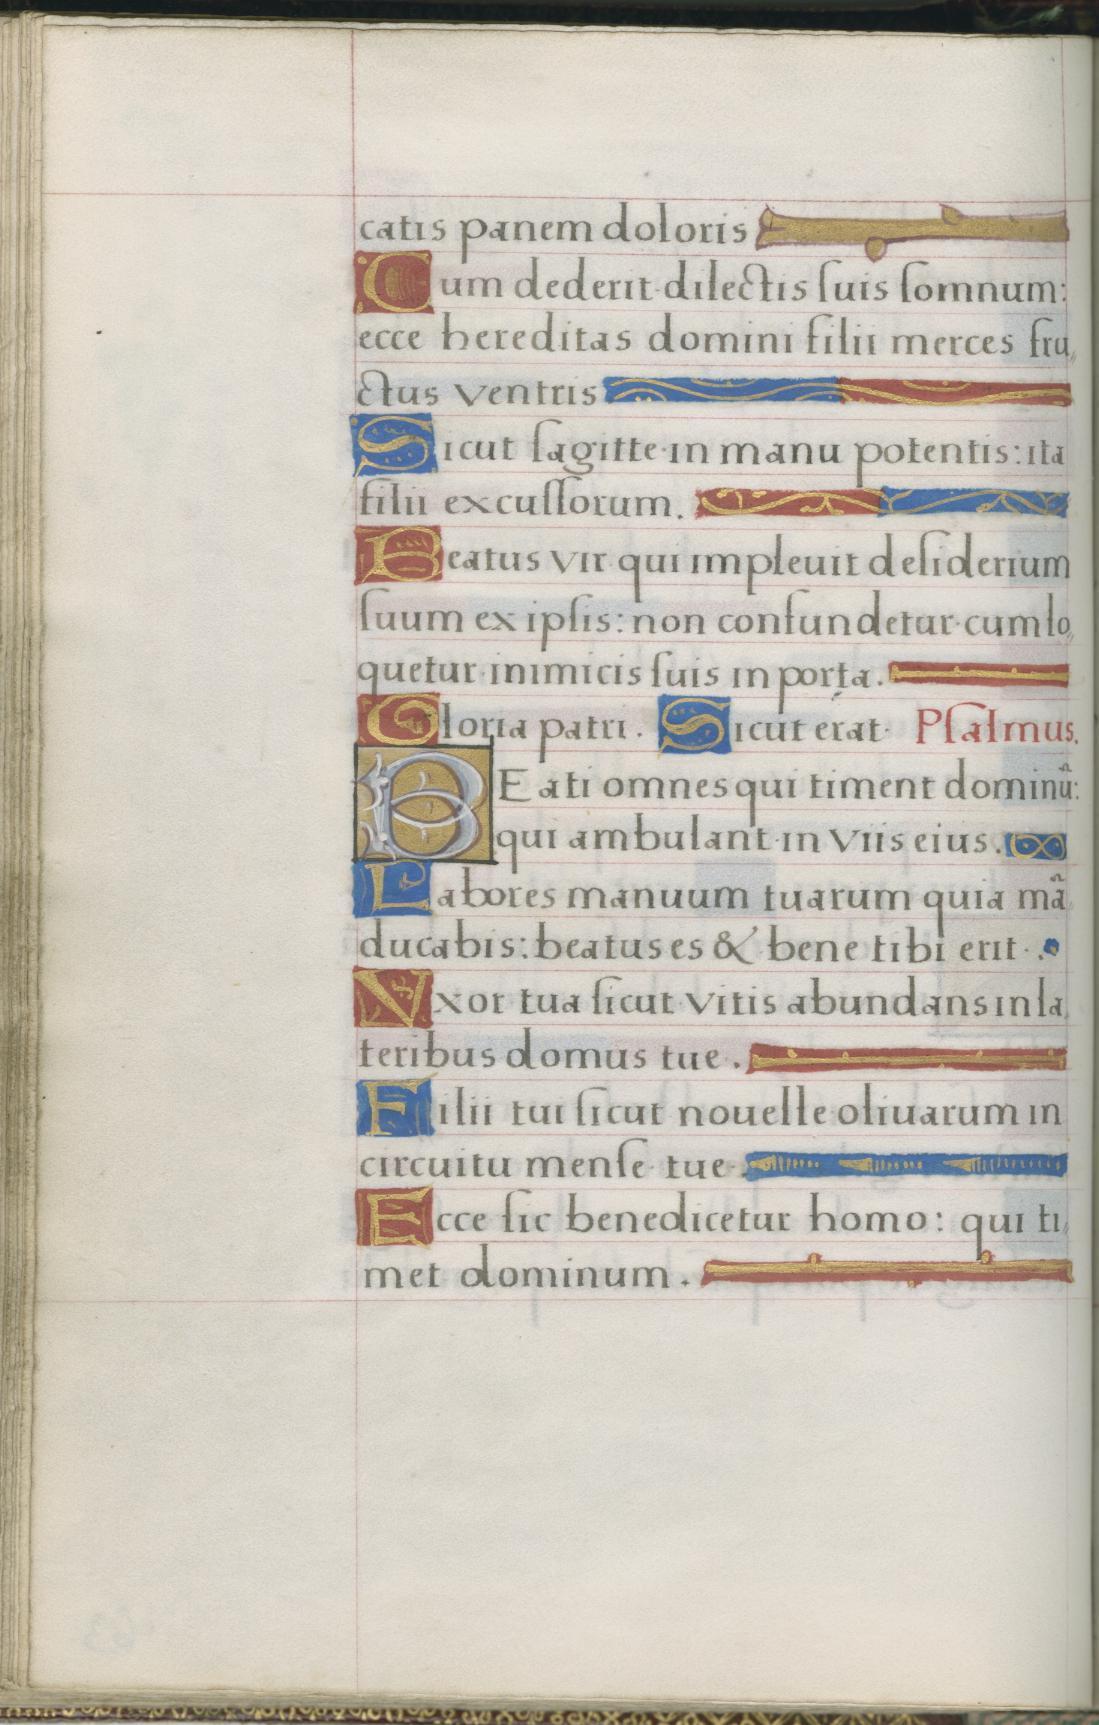 catis panem doloris
Cum dederit dilectis ſuis ſomnum:
ecce hereditas domini filii merces fru,,
ctus ventris
Sicut ſagitte in manu potentis: ita
filii excuſſorum.
Beatus vir qui impleuit deſiderium
ſuum ex ipſis: non confundetur cum lo,,
quetur inimicis ſuis in porta.
Gloria patri. Sicut erat Pſalmus.
BEati omnes qui timent dominũ:
qui ambulant in viis eius.
Labores manuum tuarum quia mã
ducabis: beatus es & bene tibi erit.
Vxor tua ſicut vitis abundans in la,,
teribus domus tue.
Filii tui ſicut nouelle oliuarum in
circuitu menſe tue.
Ecce ſic benedicetur homo: qui ti,,
met dominum.